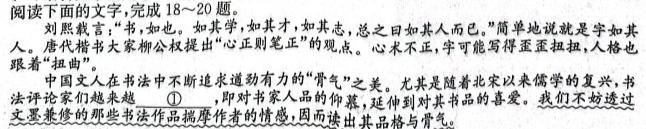 阅读下面的文字,完成18~20题。
刘熙载言:“书,如也。如其学,如其才,如其志,总之曰如其人而已。”简单地说就是字如其
人。唐代楷书大家柳公权提出“心正则笔正”的观点。心术不正,字可能写得歪歪扭扭,人格也
跟着“扭曲”。
中国文人在书法中不断追求遒劲有力的“骨气”之美。尤其是随着北宋以来儒学的复兴,书
法评论家们越来越 ① ,即对书家人品的仰慕,延伸到对其书品的喜爱。我们不妨透过
文墨兼修的那些书法作品揣摩作者的情感,因而读出其品格与骨气。